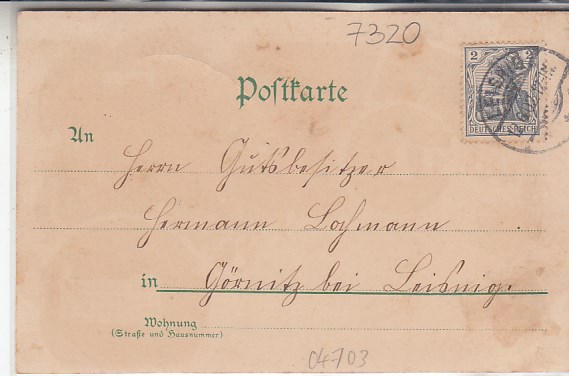 7320
2 2
DEUTSCHES REICH
LEISNIG
Postkarte
An
Herrn Gutsbesitzer
Hermann Lochmann
in Görnitz bei Leisnig.
Wohnung
(Straße und Hausnummer)
04703